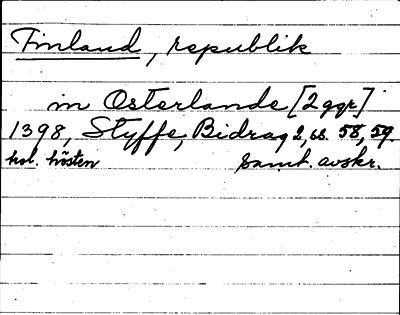 Finland, republik
in Osterlande [2 ggr]
1398, Styffe, Bidrag 2, ss. 58, 59.
hol. hösten samt. avskr.